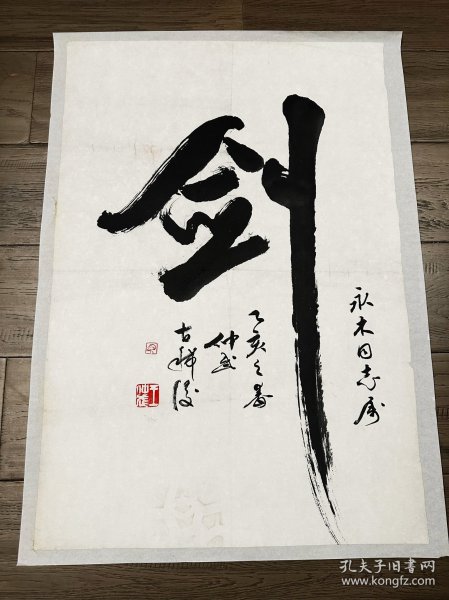 剑
永木同志属
乙亥之春
仲武
孔夫子旧书网
www.kongfz.com